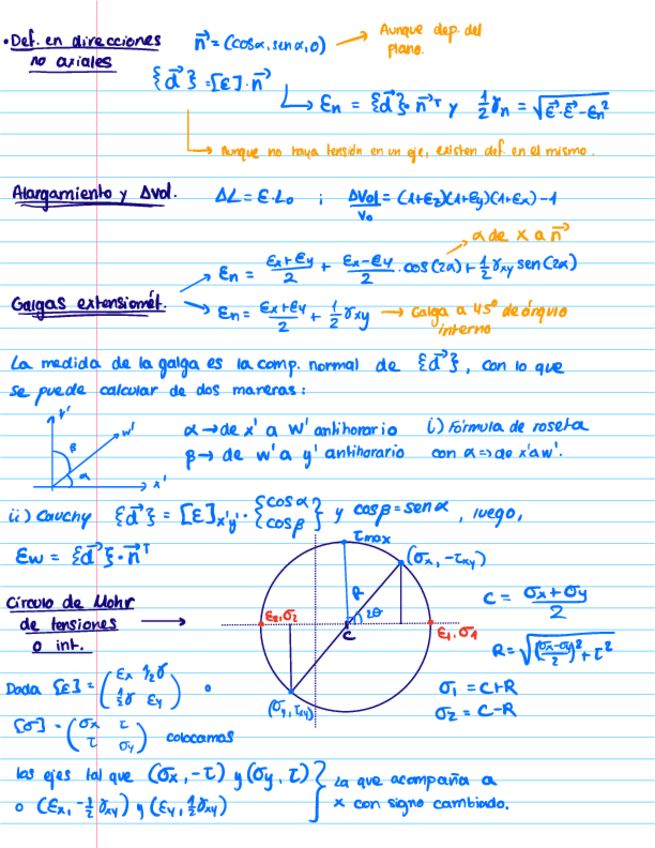 • Def. en direcciones no axiales
n⃗ = (cosα, senα, 0) → Aunque dep. del plano.
{d⃗} = [ε]·n⃗
↳ εn = {d⃗}·n⃗ᵀ y 1/2 γn = √(ε⃗·ε⃗ - εn²)
↳ Aunque no haya tensión en un eje, existen def. en el mismo.
Alargamiento y Δvol. ΔL = ε·L₀ ; ΔVol/V₀ = (1+εz)(1+εy)(1+εx) - 1
α de x a n⃗
εn = (εx+εy)/2 + (εx-εy)/2 · cos(2α) + 1/2 γxy sen(2α)
Galgas extensiomét. → εn = (εx+εy)/2 + 1/2 γxy → Galga a 45º de ángulo interno
La medida de la galga es la comp. normal de {d⃗}, con lo que
se puede calcular de dos maneras:
y' w' β α x'
α → de x' a w' antihorario i) Fórmula de roseta
β → de w' a y' antihorario con α => de x' a w'.
ii) Cauchy {d⃗} = [ε]x'y' · {cosα cosβ} y cosβ = senα, luego,
εw = {d⃗}·n⃗ᵀ
τmax
(σx, -τxy)
R 2θ
Círculo de Mohr de tensiones o int. →
ε2, σ2 C ε1, σ1
(σy, τxy)
C = (σx+σy)/2
R = √(((σx-σy)/2)² + τ²)
σ1 = C+R
σ2 = C-R
Dada [ε] = (εx 1/2γ 1/2γ εy) o
[σ] = (σx τ τ σy) colocamos
los ejes tal que (σx, -τ) y (σy, τ) } La que acompaña a
o (εx, -1/2 γxy) y (εy, 1/2 γxy) x con signo cambiado.